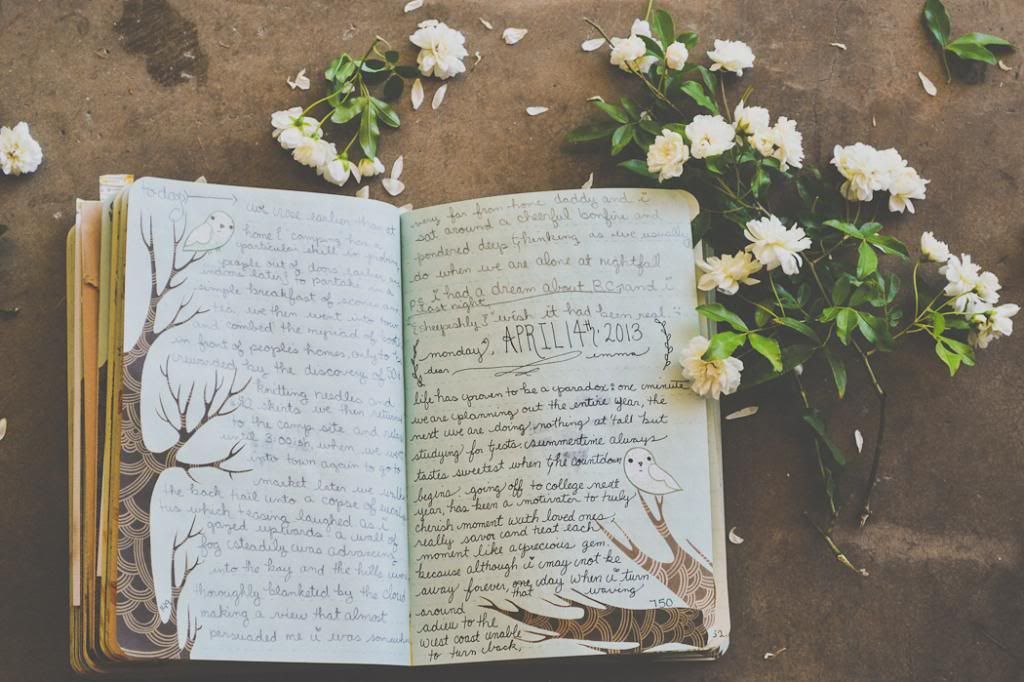 today
we rose earlier than at
home & camping has a
particular skill in
people out of doors earlier
indoors later) to partake in a
simple breakfast of scones and
tea. we then went into town
and combed the myriad of
in front of people's homes, only to
rewarded by the discovery of 50¢
knitting needles and
$2 skirts. we then
to the camp site and
until 3:00ish, when we
into town again to go to
market later we
the back trail into a copse of
us which teasing laughed as i
gazed upwards. a wall of
fog steadily was
into the bay and the hills were
thoroughly blanketed by the cloud
making a view that almost
persuaded me i was
very far from home. daddy and i
sat around a cheerful bonfire and
pondered deep thinking as we usually
do when we are alone at nightfall
p.s. i had a dream about B.C. and i
last night
{sheepishly} wish it had been real.
monday, APRIL 14th, 2013
dear emma
life has proven to be a paradox: one minute
we are planning out the entire year, the
next we are doing nothing at all but
studying for tests. summertime always
tastes sweetest when the countdown
begins. going off to college next
year, has been a motivator to truly
cherish moment with loved ones,
really savor and treat each
moment like a precious gem.
because although i may not be
away forever, one day when i turn
that waving
around 150
adieu to the
west coast enable
to turn back.
32